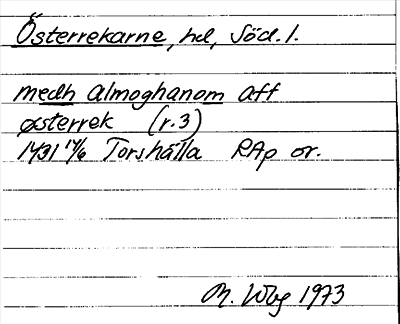 Österrekarne, hd, Söd. l.
medh almoghanom aff
østerrek (r. 3)
1431 14/6 Torshälla RAp or.
M. Wbg 1973